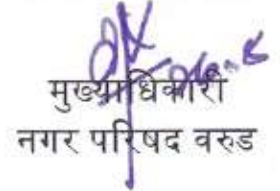 मुख्याधिकारी
नगर परिषद वरुड